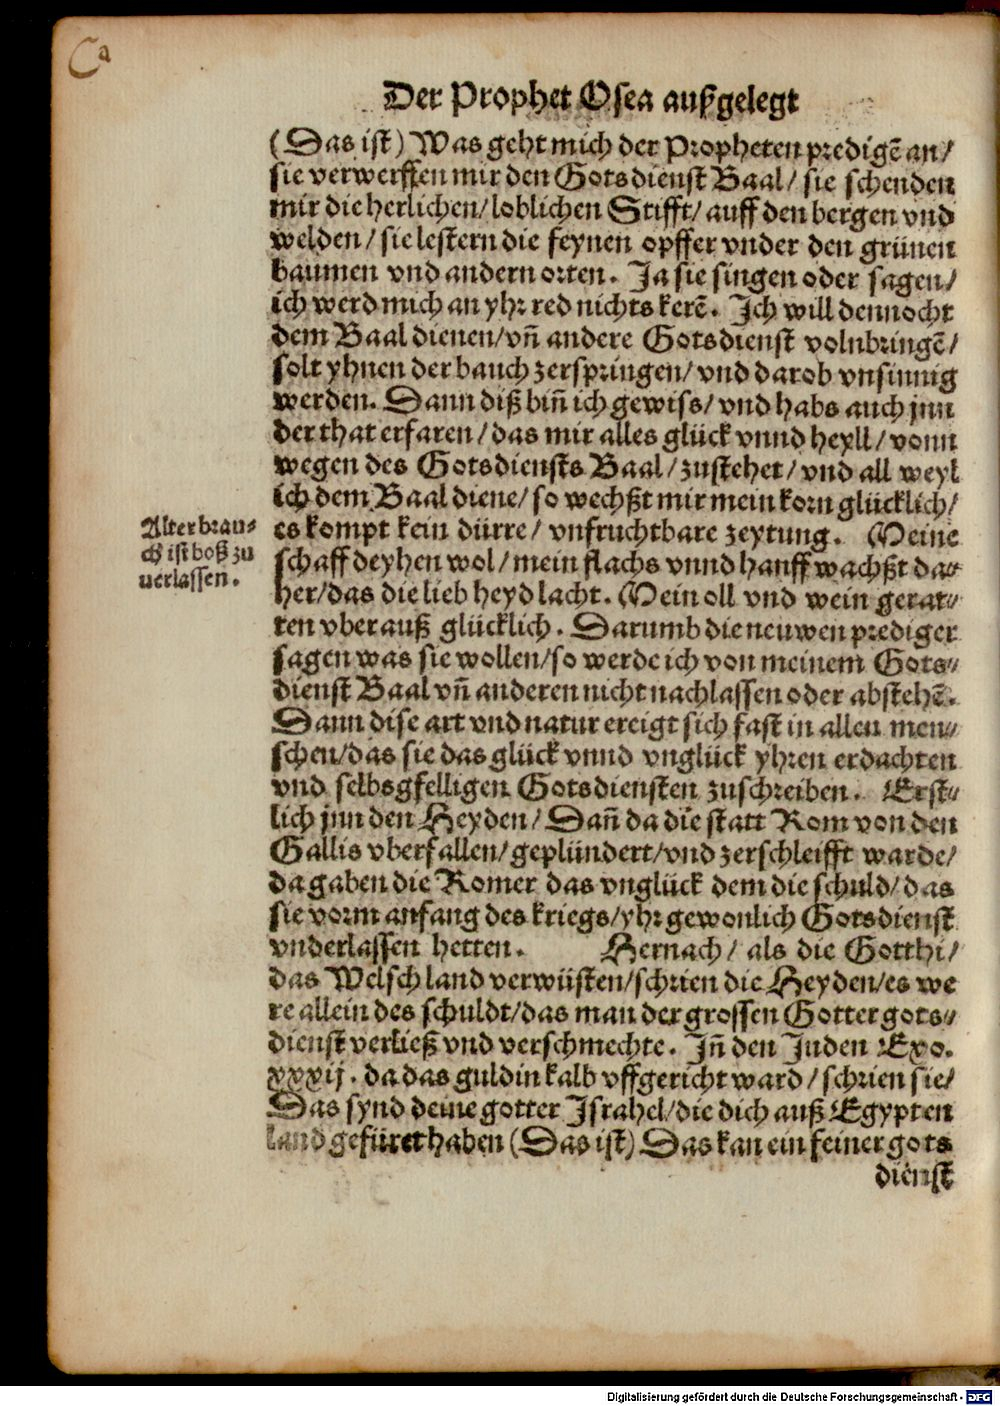 Ca
Der Prophet Osea außgelegt
(Das ist) Was geht mich der Propheten predigē an/
sie verwerffen mir den Gotsdienst Baal/ sie schenden
mir die herlichen/ loblichen Stifft/ auff den bergen vnd
welden/ sie lestern die feynen opffer vnder den grünen
baumen vnd andern orten. Ja sie singen oder sagen/
ich werd mich an yhr red nichts kerē. Ich will dennocht
dem Baal dienen/ vñ andere Gotsdienst volnbringē/
solt yhnen der bauch zerspringen/ vnd darob vnsinnig
werden. Dann diß biñ ich gewiss/ vnd habs auch jnn
der that erfaren/ das mir alles glück vnnd heyll/ vonn
wegen des Gotsdiensts Baal/ zustehet/ vnd all weyl
ich dem Baal diene/ so wechßt mir mein korn glücklich/
es kompt kein dürre/ vnfruchtbare zeytung. Meine
schaff deyhen wol/ mein flachs vnnd hanff wachßt da⸗
her/ das die lieb heyd lacht. Mein oll vnd wein gerat⸗
ten vber auß glücklich. Darumb die neuwen prediger
sagen was sie wollen/ so werde ich von meinem Gots⸗
dienst Baal vñ anderen nicht nachlassen oder abstehē.
Dann dise art vnd natur ereigt sich fast in allen men⸗
schen/ das sie das glück vnnd vnglück yhren erdachten
vnd selbsgfelligen Gotsdiensten zuschreiben. Erst⸗
lich jnn den Heyden/ Dañ da die statt Rom von den
Gallis vberfallen/ geplündert/ vnd zerschleifft warde/
da gaben die Romer das vnglück dem die schuld/ das
sie vorm anfang des kriegs/ yhr gewonlich Gotsdienst
vnderlassen hetten. Hernach/ als die Gotthi/
das Welsch land verwüsten/ schrien die Heyden/ es we
re allein des schuldt/ das man der grossen Gotter gots⸗
dienst verließ vnd verschmechte. Iñ den Juden Exo.
xxxij. da das guldin kalb vffgericht ward/ schrien sie/
Das synd deine gotter Israhel/ die dich auß Egypten
land gefüret haben (Das ist) Das kan ein feiner gots
dienst
Alter brau⸗
ch ist boß zu
uerlassen.
Digitalisierung gefördert durch die Deutsche Forschungsgemeinschaft - DFG